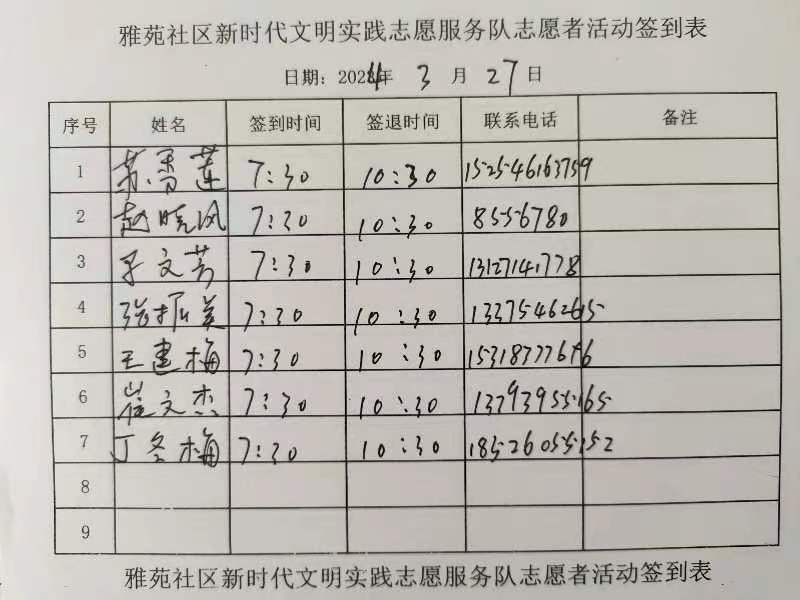 雅苑社区新时代文明实践志愿服务队志愿者活动签到表
日期：2024年 3 月 27 日
序号 姓名 签到时间 签退时间 联系电话 备注
1 苏秀莲 7:30 10:30 152546163759
2 赵晓风 7:30 10:30 8556780
3 文芳 7:30 10:30 13127141778
4 张振美 7:30 10:30 13375462615
5 王建梅 7:30 10:30 15318777676
6 崔文杰 7:30 10:30 13793955165
7 丁冬梅 7:30 10:30 18526055152
8
9
雅苑社区新时代文明实践志愿服务队志愿者活动签到表